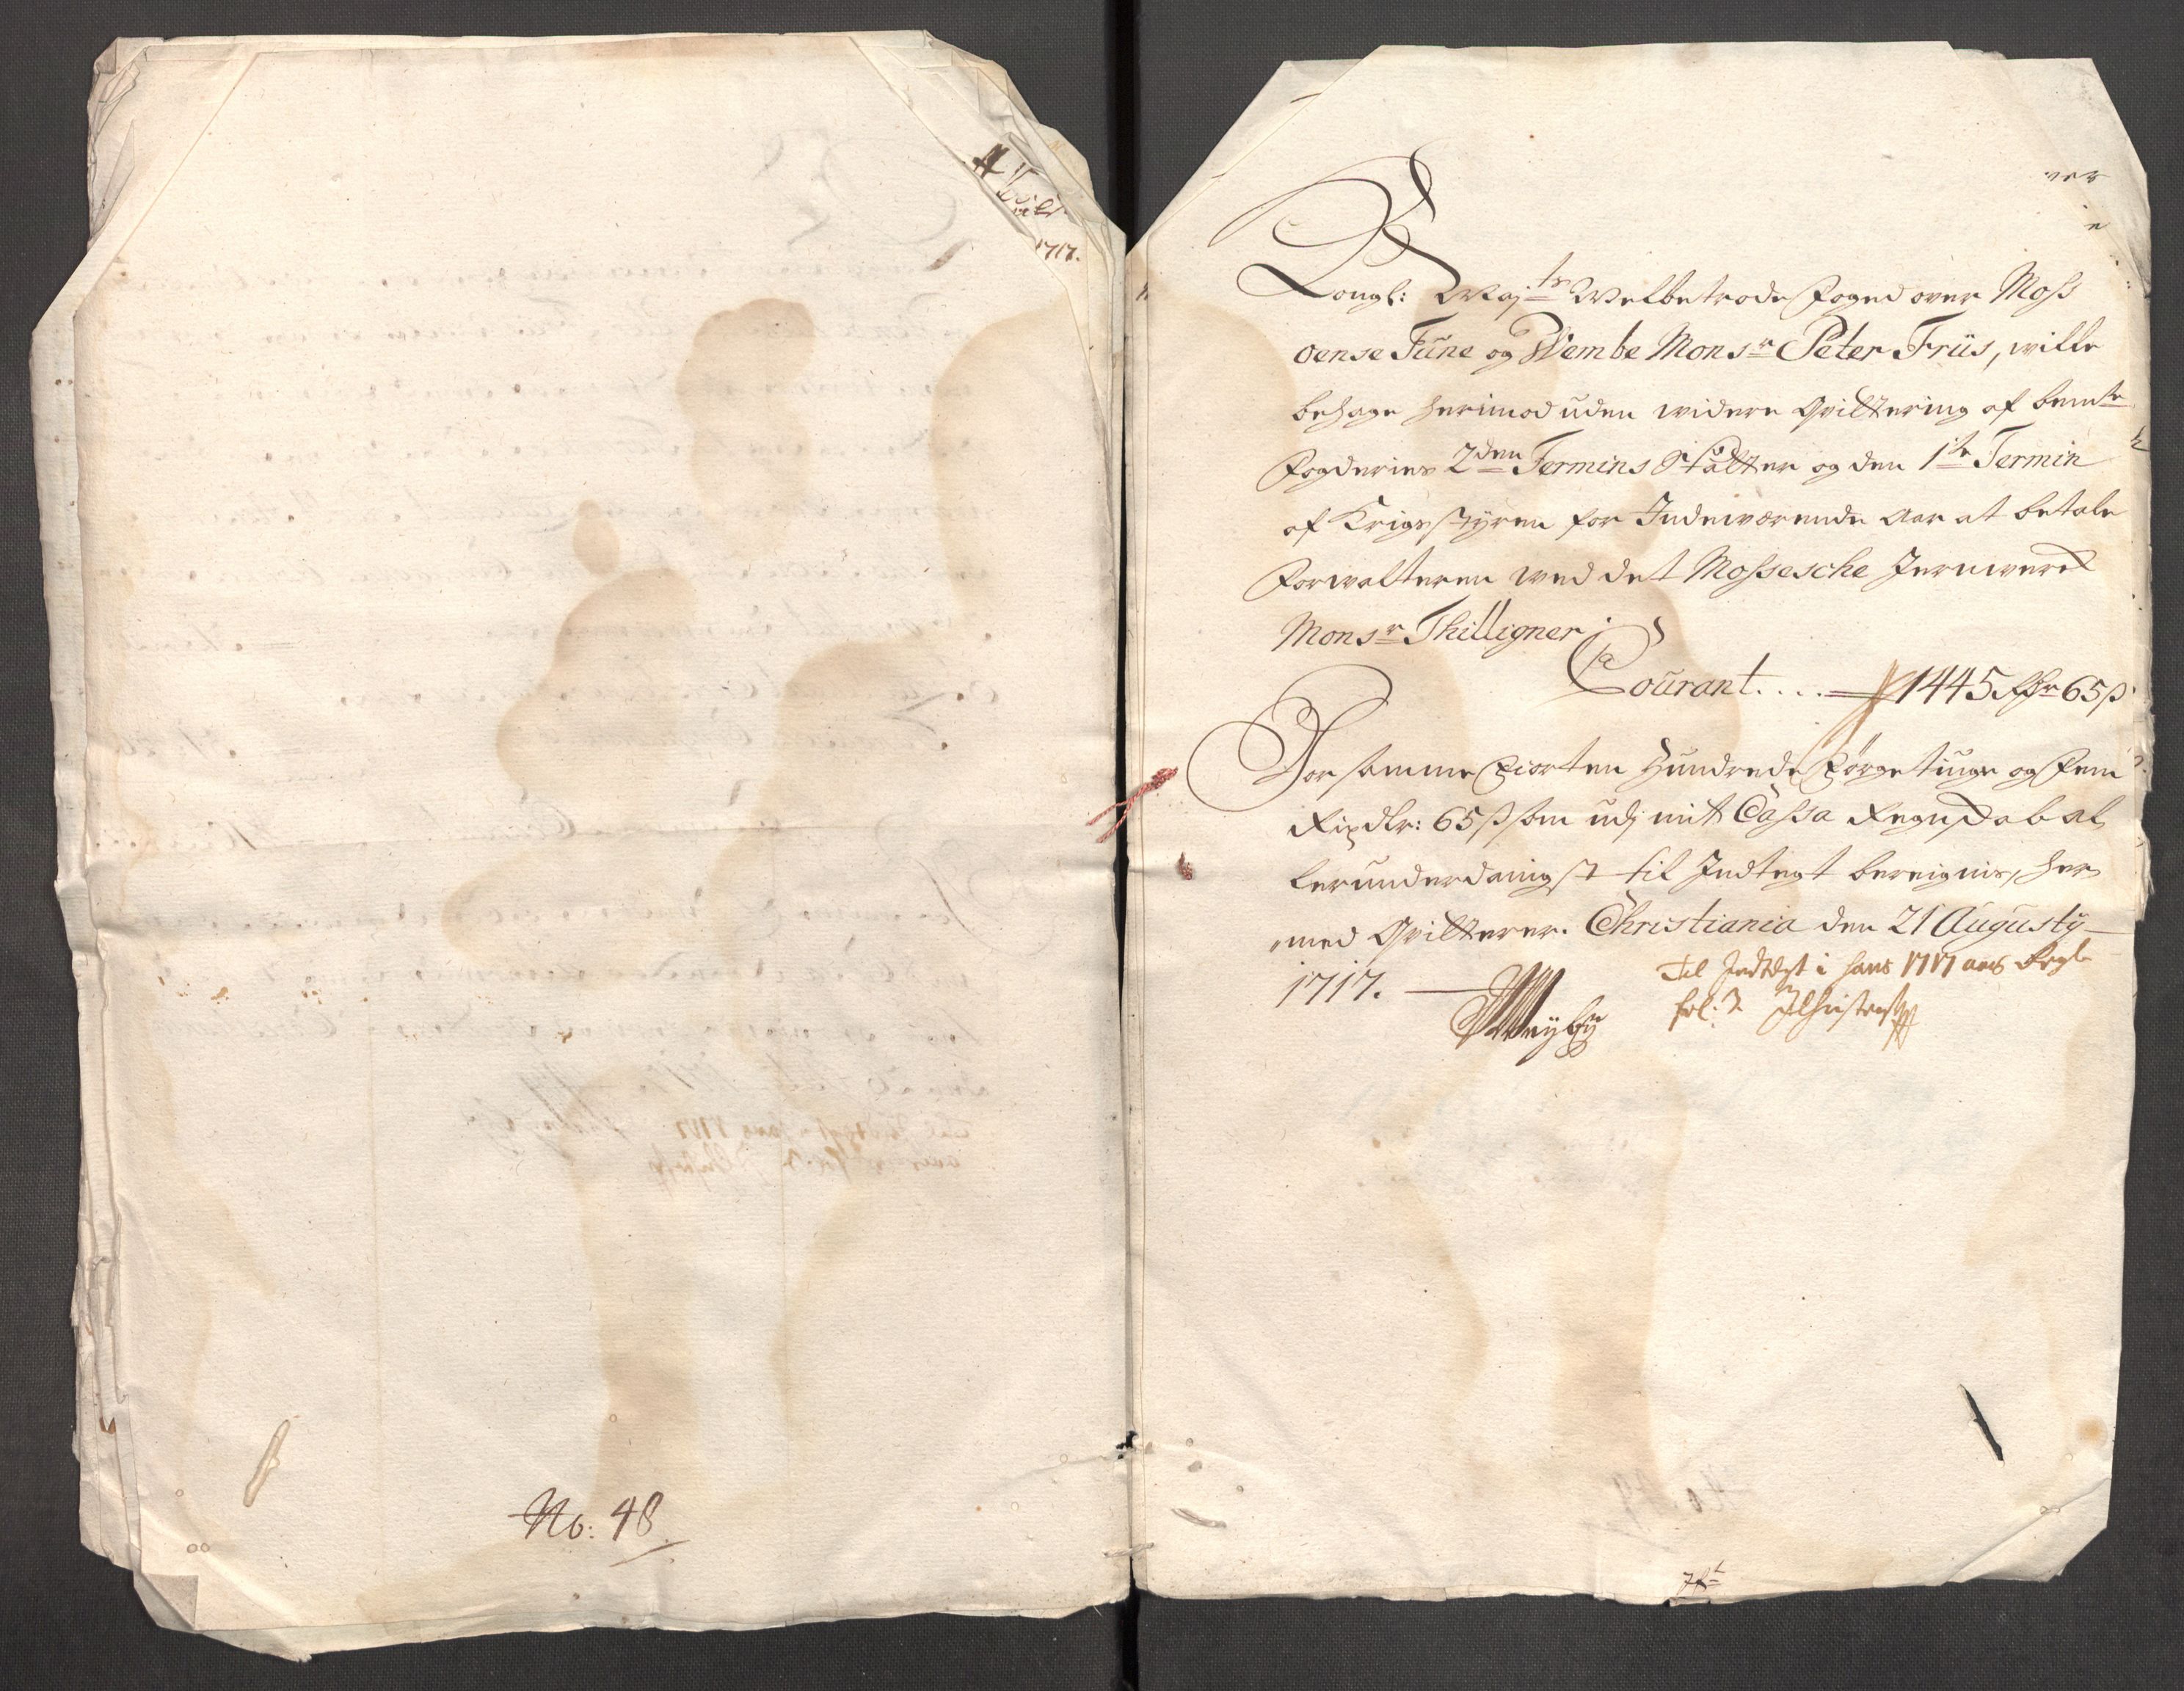 1717.
No: 48
Kongl: Maj:ts Welbetrode foged over Moss
oense Tüne og Wembe Monsr Peter Friis, wille
behage herimod uden widere Qvittering af bemte
fogderies 2den Termins Skatter og den 1te Termin
af Krigsstyren for Indeværende Aar at betale
forwalteren wed det Mossesche Jernwerck
Monsr Thilligner
Courant.... 1445 Rdr 65ß
For samme fiorten Hundrede førgetiuge og fem
Rixdlr: 65ß som udj mit Cassa Regnskab al
lerunderdanigst til Indtegt bereignis, her
med Qvitterer. Christiania den 21 Augustij
1717.
Til Indtegt i hans 1717 aars Regl
fol: 3